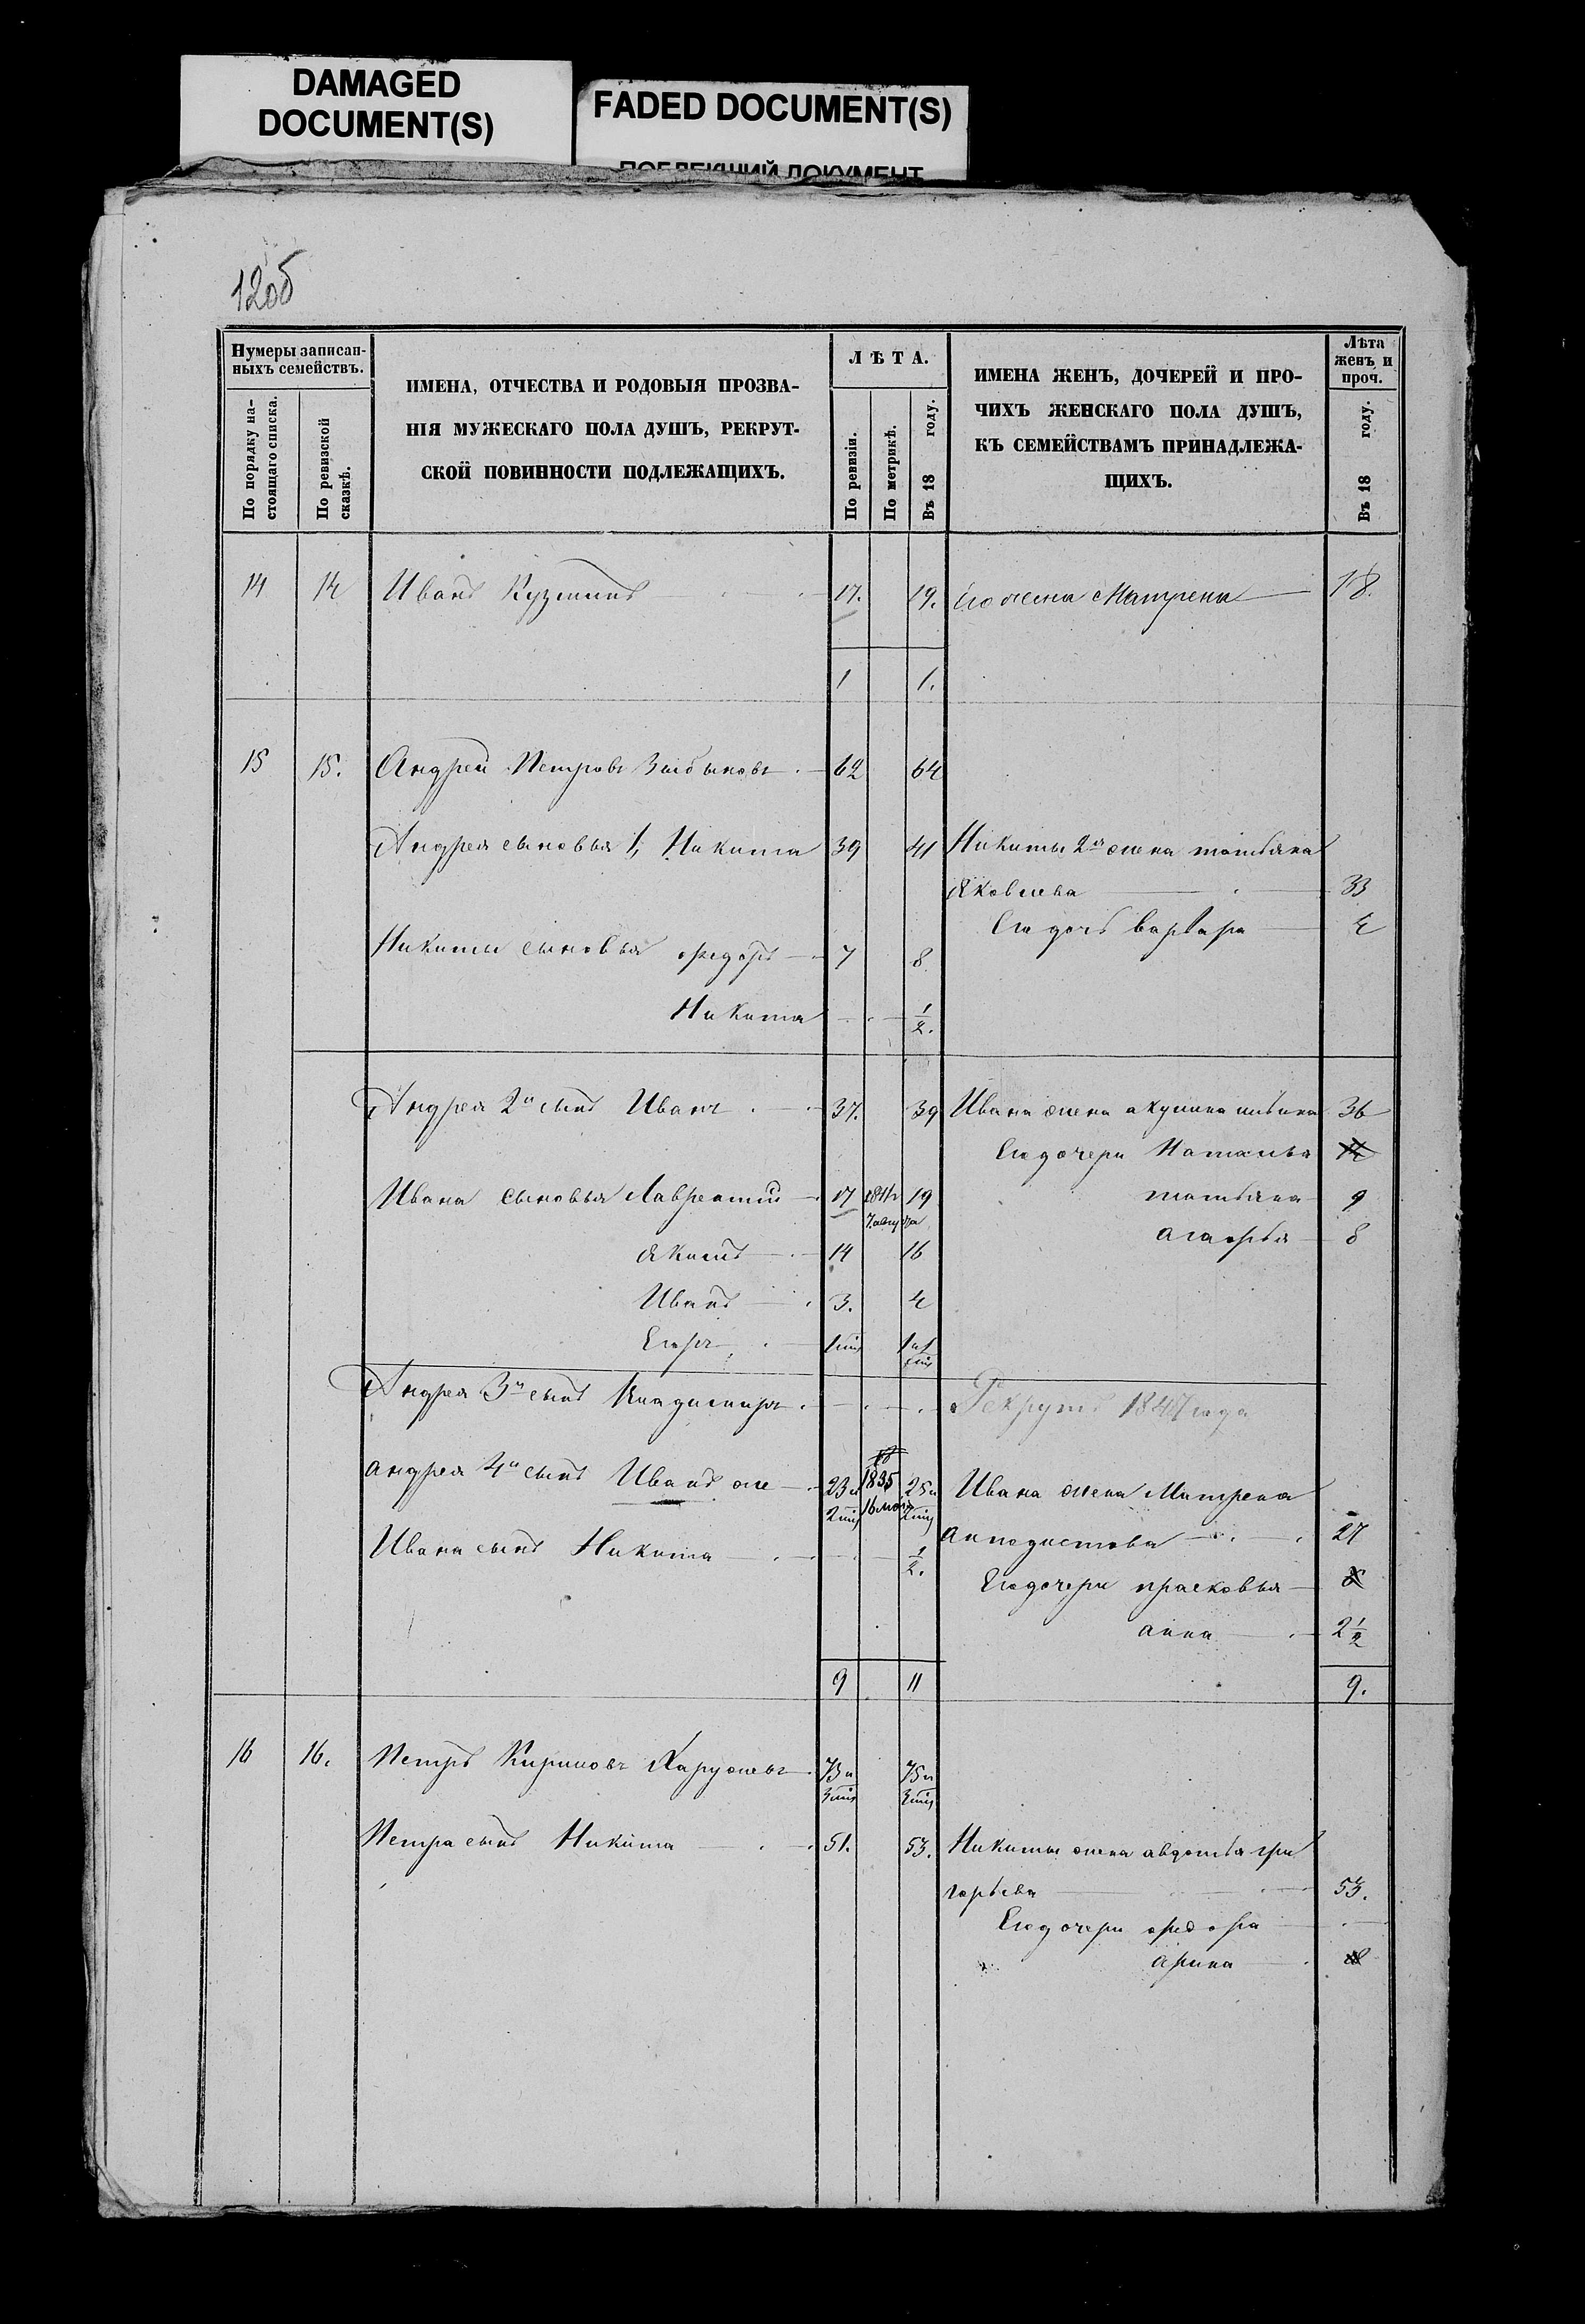 DAMAGED
DOCUMENT(S)
FADED DOCUMENT(S)
ПОБЛЕКШИЙ ДОКУМЕНТ
12об
Нумеры записан-
ныхъ семействъ.
По порядку на-
стоящаго списка.
По ревизской
сказкѣ.
ИМЕНА, ОТЧЕСТВА И РОДОВЫЯ ПРОЗВА-
НІЯ МУЖЕСКАГО ПОЛА ДУШЪ, РЕКРУТ-
СКОЙ ПОВИННОСТИ ПОДЛЕЖАЩИХЪ.
ЛѢТА.
По ревизіи.
По метрикѣ.
Въ 18 году.
ИМЕНА ЖЕНЪ, ДОЧЕРЕЙ И ПРО-
ЧИХЪ ЖЕНСКАГО ПОЛА ДУШЪ,
КЪ СЕМЕЙСТВАМЪ ПРИНАДЛЕЖА-
ЩИХЪ.
Лѣта
женъ и
проч.
Въ 18 году.
14 14 Иванъ Кузминъ 17. 19. Его жена Матрена 18.
1 1.
15 15. Андрей Петровъ 62 64
Андрея сыновья 1, Никита 39 41 Никиты 2я жена татьяна
Яковлева 33
Его дочь варвара 4
Никиты сыновья федоръ 7 8
Никита 1/2.
Андрея 2й сынъ Иванъ 37. 39 Ивана жена акулина 36
Его дочери Наталья
Ивана сыновья Лаврентий 17 19 татьяна 9
агафья 8
Якимъ 14 16
Иванъ 3. 4
Егоръ
Андрея 3й сынъ Владимиръ Рекрутъ 1847 года
андрея 4й сынъ Иванъ же 23 и 1835 25 и Ивана жена Матрена
2 мц 16 мая 2 мц
27
Ивана сынъ Никита 1/2.
Его дочери прасковья
анна 2 1/2
9 11 9.
16 16. Петръ Кириловъ 73 и 75 и
3 мц 3 мц
Петра сынъ Никита 51. 53. Никиты жена авдотья гри
горьева 53.
Его дочери федора
арина